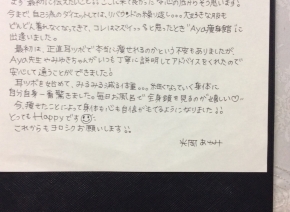 まず最初に伝えたいこと。ここに来て良かった♡心の底からそう思います。
今まで自己流のダイエットしては、リバウンドの繰り返し。。。大好きな服も
どんどん着れなくなってきて、コレはマズイ。。と思った時に"Aya痩身館"に
出逢いました。
最初は、正直耳ツボで本当に痩せれるのかという不安もありましたが、
Aya先生やみゆきちゃんがいつも丁寧に説明してアドバイスをくれたので
安心して通うことができました。
耳ツボを始めて、みるみる減る体重。。。細くなっていく身体に
自分自身一番驚きました。毎日お風呂で全身鏡を見るのが嬉しい♡
今、痩せたことによって身体も心も自信がもてるようになりました。
とってもHappyです
これからもヨロシクお願いします。